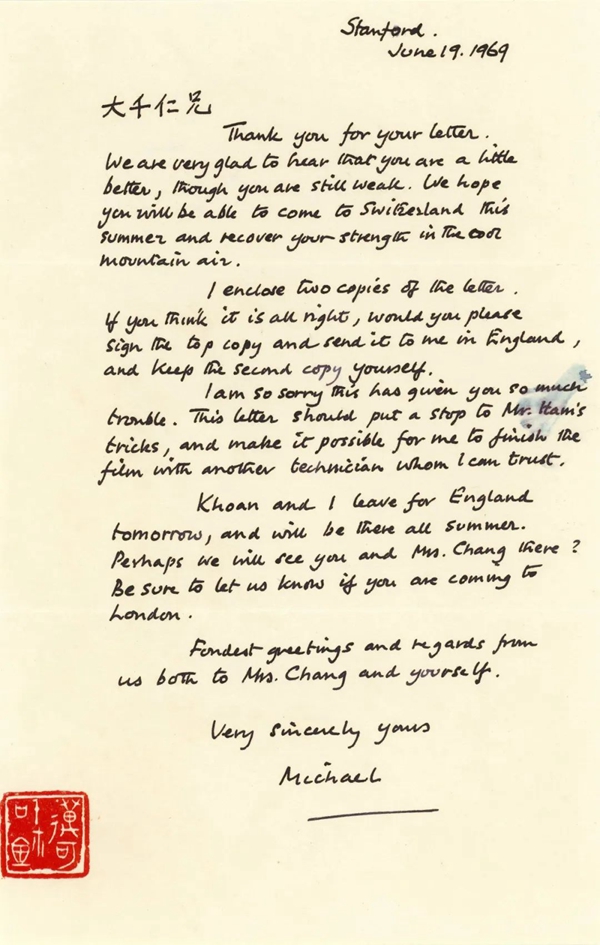 Stanford.
June 19. 1969
大千仁兄
Thank you for your letter.
We are very glad to hear that you are a little
better, though you are still weak. We hope
you will be able to come to Switzerland this
summer and recover your strength in the cool
mountain air.
I enclose two copies of the letter.
If you think it is all right, would you please
sign the top copy and send it to me in England,
and keep the second copy yourself.
I am so sorry this has given you so much
trouble. This letter should put a stop to Mr. Ham's
tricks, and make it possible for me to finish the
film with another technician whom I can trust.
Khoan and I leave for England
tomorrow, and will be there all summer.
Perhaps we will see you and Mrs. Chang there?
Be sure to let us know if you are coming to
London.
Fondest greetings and regards from
us both to Mrs. Chang and yourself.
Very sincerely yours
Michael